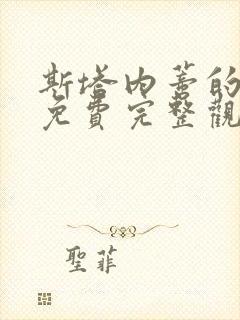 斯塔内善的
免費完整觀
聖菲